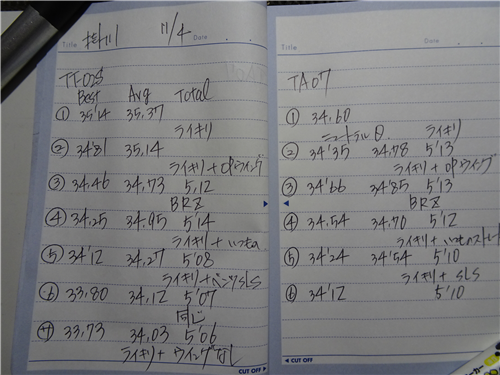 Title 掛川 11/4 Date . .
TF02S
Best Avg Total
① 35'14 35,37
ライキリ
② 34'81 35,14
ライキリ+OPウイング
③ 34,46 34,73 5,12
BRZ
④ 34,25 34,95 5'14
ライキリ+いつもの
⑤ 34'12 34,27 5'08
ライキリ+ベンツSLS
⑥ 33,80 34,12 5'07
同じ
⑦ 33,73 34,03 5'06
ライキリ+ウイングなし
CUT OFF ▶
Title Date . .
TA07
① 34,60
ニュートラル ライキリ
② 34'35 34,78 5'13
ライキリ+OPウイング
③ 34'66 34'85 5'13
BRZ
④ 34,54 34,70 5'12
ライキリ+いつもの
⑤ 34'24 34'54 5'10
ライキリ+SLS
⑥ 34'12 5'10
◀ CUT OFF